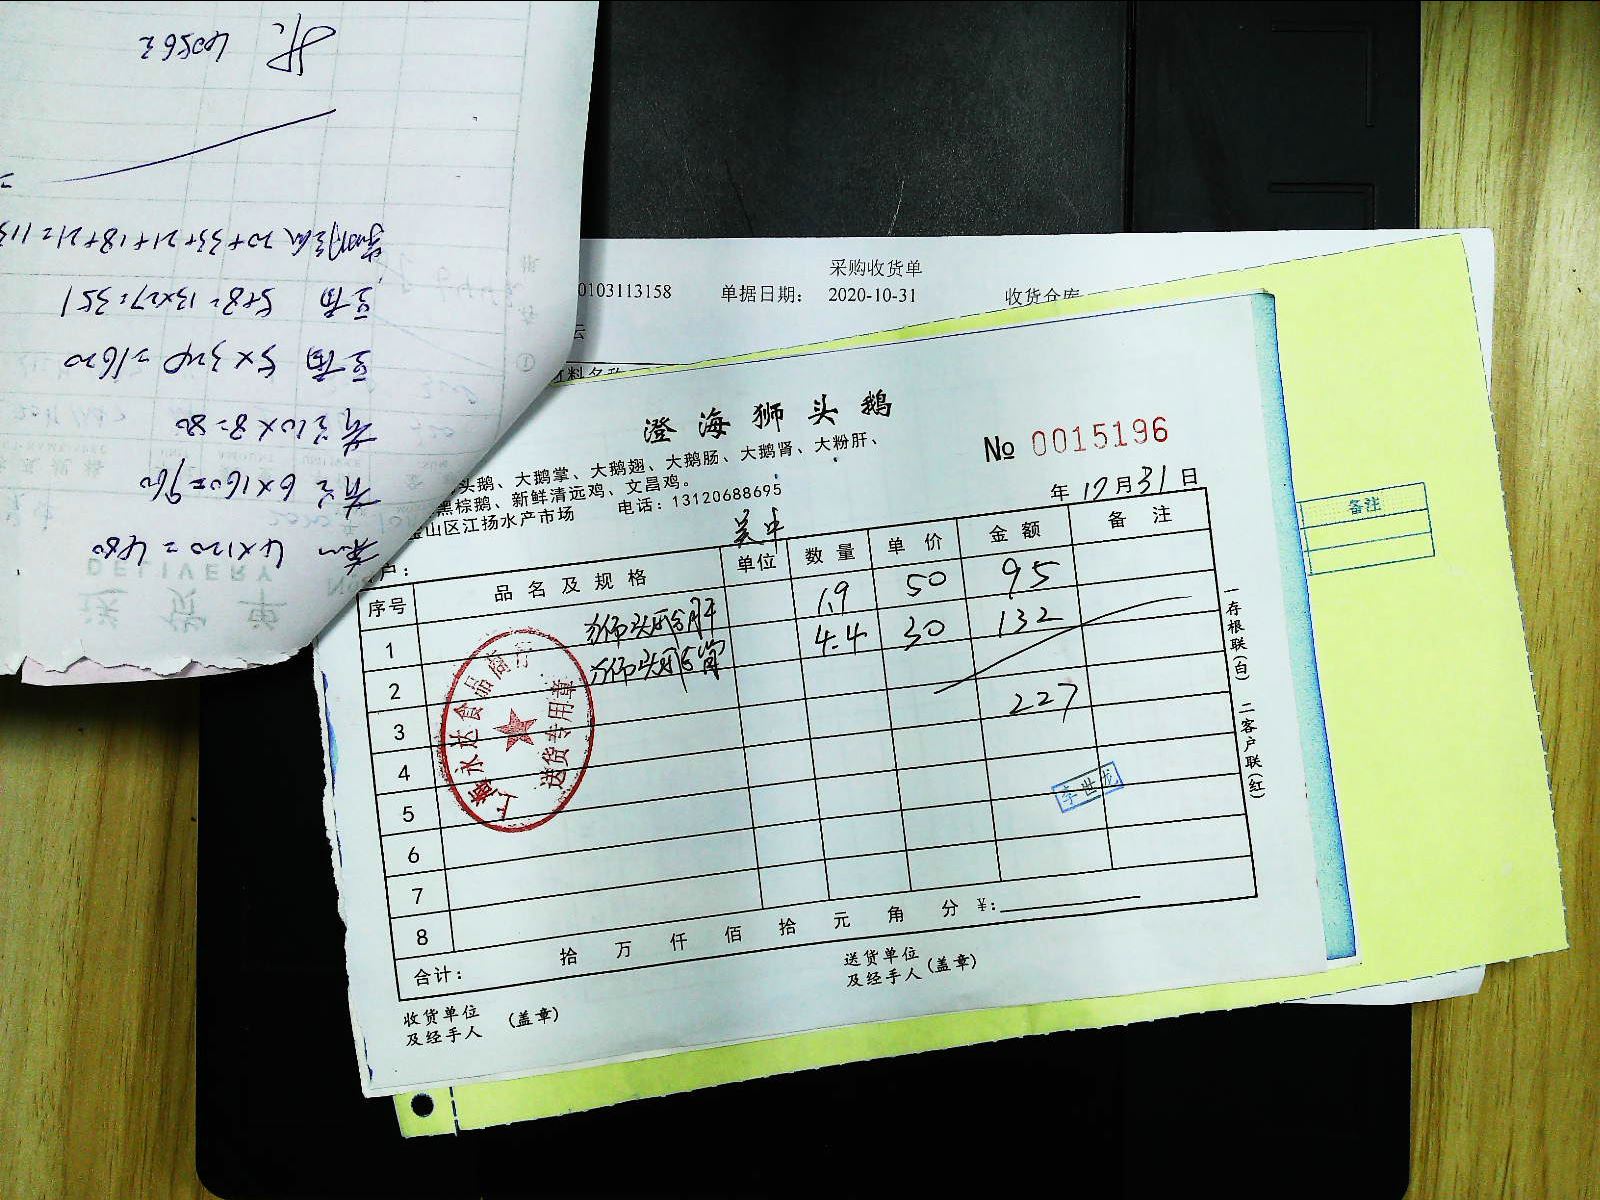 采购收货单
0103113158 单据日期: 2020-10-31 收货仓库
云
材料名称
澄海狮头鹅
№ 0015196
头鹅、大鹅掌、大鹅翅、大鹅肠、大鹅肾、大粉肝、
黑棕鹅、新鲜清远鸡、文昌鸡。
金山区江扬水产市场 电话:13120688695
年 10月31日
户:
序号 品名及规格 单位 数量 单价 金额 备注
1 狮头鹅肝 1.9 50 95
2 4.4 30 132
3
227
4
5
6
7
8
合计: 拾 万 仟 佰 拾 元 角 分 ¥:
收货单位
及经手人 (盖章)
送货单位
及经手人 (盖章)
一存根联(白) 二客户联(红)
上海永达食品商行
送货专用章
李世龙
备注
送货单
DELIVERY
4×120=480
6×160=960
10×8=80
豆角 5×324=1620
豆角 5+8=13×27=351
20+33+21+18+21=113
40562